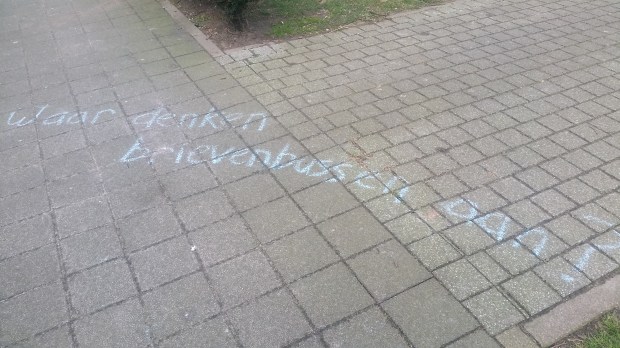 waar denken
brievenbussen aan?